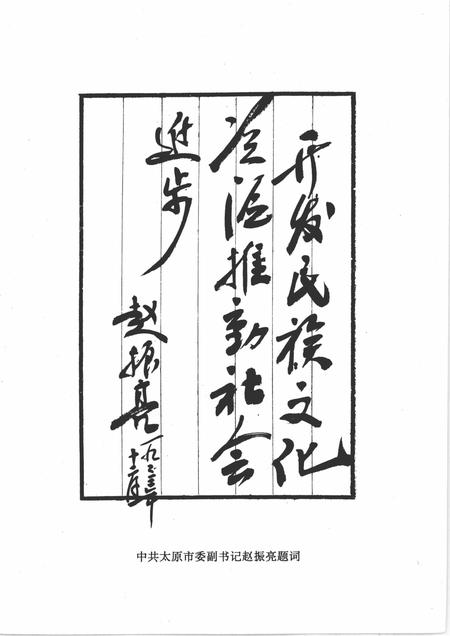 开发民族文化
资源推动社会
进步
赵振亮
中共太原市委副书记赵振亮题词